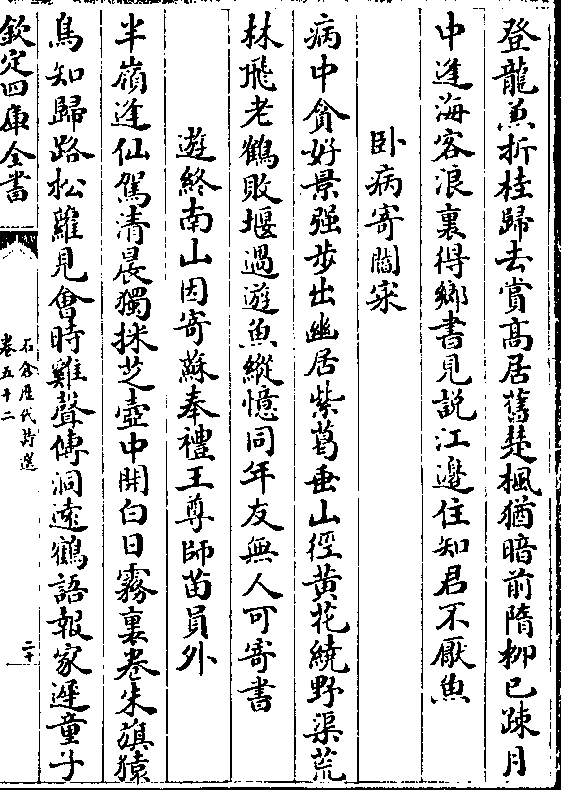 登龍兼折桂歸去賞高居舊楚楓猶暗前隋柳已踈月
中逢海客浪裏得鄉書見說江邊住知君不厭魚
卧病寄閻寀
病中貪好景强步出幽居紫葛垂山徑黄花繞野渠荒
林飛老鶴敗堰過遊魚縱憶同年友無人可寄書
遊終南山因寄蘇奉禮王尊師苗員外
半嶺逢仙駕清晨獨採芝壺中開白日霧裏卷朱旗猿
鳥知歸路松蘿見會時雞聲傳洞遠鶴語報家遲童子
欽定四庫全書
石倉歷代詩選
卷五十二
二十